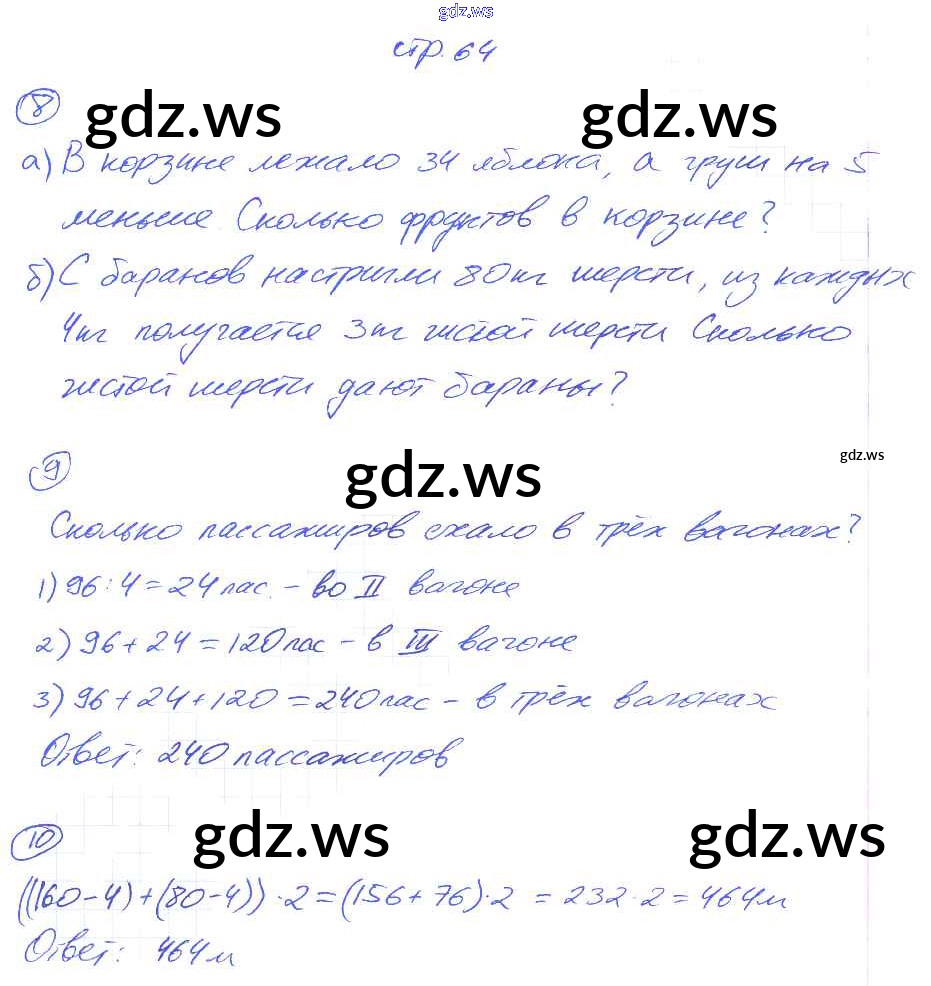 gdz.ws
стр. 64
8
gdz.ws gdz.ws
а) В корзине лежало 34 яблока, а груш на 5
меньше. Сколько фруктов в корзине?
б) С баранов настригли 80 кг шерсти, из каждых
4 кг получается 3 кг чистой шерсти Сколько
чистой шерсти дают бараны?
9
gdz.ws gdz.ws
Сколько пассажиров ехало в трёх вагонах?
1) 96 : 4 = 24 пас. – во II вагоне
2) 96 + 24 = 120 пас – в III вагоне
3) 96 + 24 + 120 = 240 пас – в трёх вагонах
Ответ: 240 пассажиров
10
gdz.ws gdz.ws
((160 – 4) + (80 – 4)) · 2 = (156 + 76) · 2 = 232 · 2 = 464 м
Ответ: 464 м